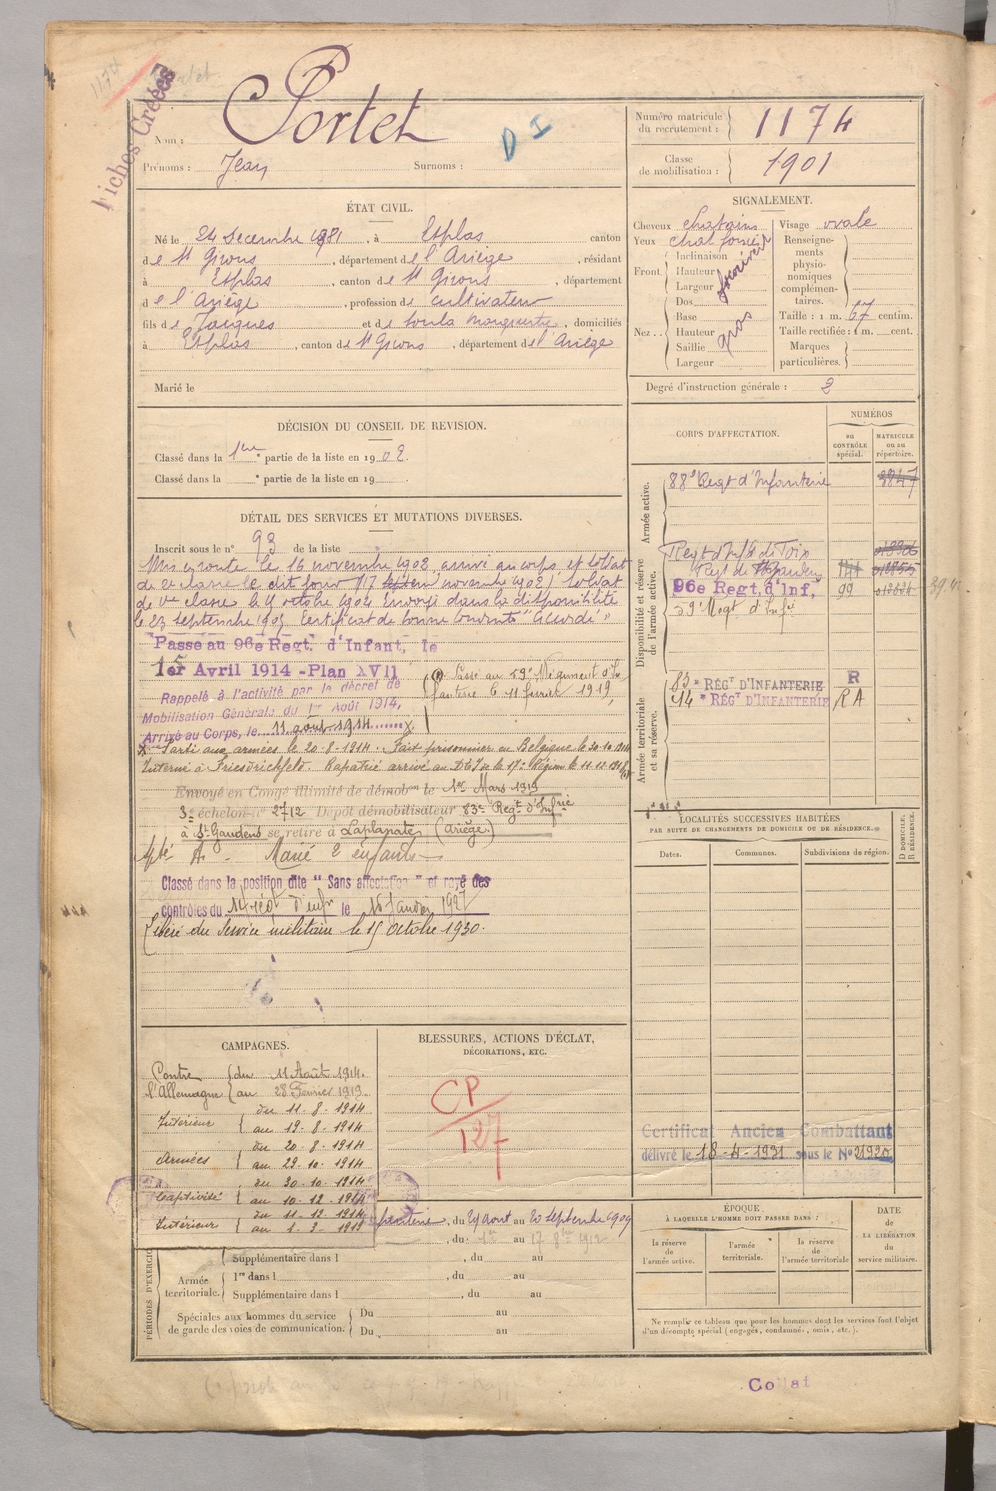 1174
Fiches Créées
Nom : Portet
D I
Prénoms : Jean Surnoms :
Numéro matricule du recrutement : 1174
Classe de mobilisation : 1901
ÉTAT CIVIL.
Né le 24 Decembre 1881, à Esplas canton
de St Girons, département de l'Ariège, résidant
à Esplas, canton de St Girons, département
de l'Ariège, profession de cultivateur
fils de Jacques et de Soula Marguerite, domiciliés
à Esplas, canton de St Girons, département de l'Ariège
Marié le
SIGNALEMENT.
Cheveux chatains
Yeux chat foncé
Front. Inclinaison
Hauteur
Largeur
Nez .. Dos
Base
Hauteur
Saillie
Largeur
gros
Visage ovale
Renseignements physionomiques complémentaires.
Taille : 1 m. 67 centim.
Taille rectifiée : 1 m. cent.
Marques particulières.
Degré d'instruction générale : 2
DÉCISION DU CONSEIL DE REVISION.
Classé dans la 1ere partie de la liste en 1902.
Classé dans la e partie de la liste en 19
DÉTAIL DES SERVICES ET MUTATIONS DIVERSES.
Inscrit sous le n° 93 de la liste
Mis en route le 16 novembre 1902, arrivé au corps et soldat
de 2e classe le dit jour (17 novembre 1902) Soldat
de 1re classe le 4 octobre 1904 Envoyé dans la disponibilité
le 23 septembre 1905 Certificat de bonne conduite "Accordé"
Passé au 96e Regt. d'Infant, le
1er Avril 1914 - Plan XVII
Rappelé à l'activité par le décret de
Mobilisation Générale du 1er Août 1914,
Arrivé au Corps, le 11 août 1914 x
Passé au 59e Régiment d'In
fanterie le 11 février 1919
x Parti aux armées le 20-8-1914. Fait prisonnier en Belgique le 30.10.1914
Interné à Friedrichfeld. Rapatrié arrivé au DTI de la 17e Région le 11-12-1918
Envoyé en Congé illimité de démobon le 1er Mars 1919
3e échelon n° 2712 Dépôt démobilisateur 83e Regt d'Infrie
à St Gaudens se retire à (Ariège)
Marié 2 enfants
Classé dans la position dite "Sans affectation" et rayé des
contrôles du 14 régt d'infie le 16 Janvier 1927
Libéré du Service militaire le 15 octobre 1930.
CORPS D'AFFECTATION.
NUMÉROS
au CONTRÔLE spécial.
MATRICULE ou au répertoire.
Armée active.
88e Regt d'Infanterie
Disponibilité et réserve de l'armée active.
Regt d'Infie de Foix
96e Regt. d'Inf, 99
59e Regt d'Infie
Armée territoriale et sa réserve.
83e RÉGT D'INFANTERIE R
14e RÉGT D'INFANTERIE RA
LOCALITÉS SUCCESSIVES HABITÉES
PAR SUITE DE CHANGEMENTS DE DOMICILE OU DE RÉSIDENCE.
Dates.
Communes.
Subdivisions de région.
D DOMICILE. R RÉSIDENCE.
Certificat Ancien Combattant
délivré le 18-4-1931 sous le N° 21920
CAMPAGNES.
Contre du 11 Août 1914.
l'Allemagne au 28 Février 1919.
Intérieur du 11-8-1914
au 19-8-1914
Armées du 20-8-1914
au 29-10-1914
Captivité du 30-10-1914
au 10-12-1918
Intérieur du 11-12-1918
au 1-3-1919
BLESSURES, ACTIONS D'ÉCLAT,
DÉCORATIONS, ETC.
CP
127
, du 29 aout au 20 septembre 1909
, du 1er au 17 8bre 1912
PÉRIODES D'EXERCICES
Supplémentaire dans l , du au
Armée territoriale. 1re dans l , du au
Supplémentaire dans l , du au
Spéciales aux hommes du service
de garde des voies de communication.
Du au
Du au
ÉPOQUE
À LAQUELLE L'HOMME DOIT PASSER DANS :
la réserve de l'armée active.
l'armée territoriale.
la réserve de l'armée territoriale
DATE de LA LIBÉRATION du service militaire.
Ne remplir ce tableau que pour les hommes dont les services font l'objet
d'un décompte spécial (engagés, condamnés, omis, etc.).
Collat